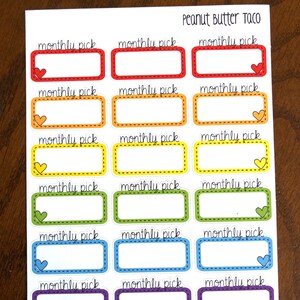 Peanut Butter Taco
monthly pick monthly pick monthly pick
monthly pick monthly pick monthly pick
monthly pick monthly pick monthly pick
monthly pick monthly pick monthly pick
monthly pick monthly pick monthly pick
monthly pick monthly pick monthly pick